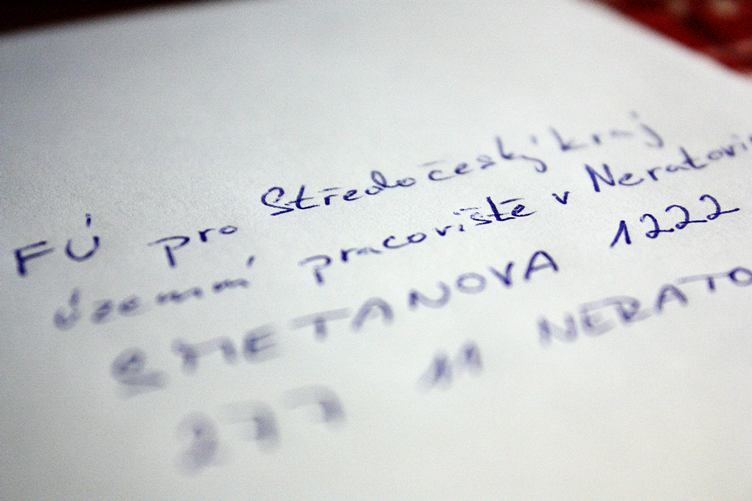 FÚ pro Středočeský kraj
územní pracoviště v Neratovi
SMETANOVA 1222
277 11 NERATO